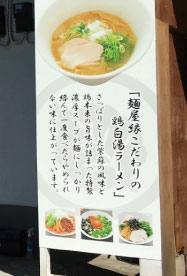 「麺屋縁こだわりの
鶏白湯ラーメン」
さっぱりとした紫蘇の風味と
鶏本来の旨味が詰まった特製
濃厚スープが麺にしっかり
絡んで一度食べたらやめられ
ない味に仕上がっています。